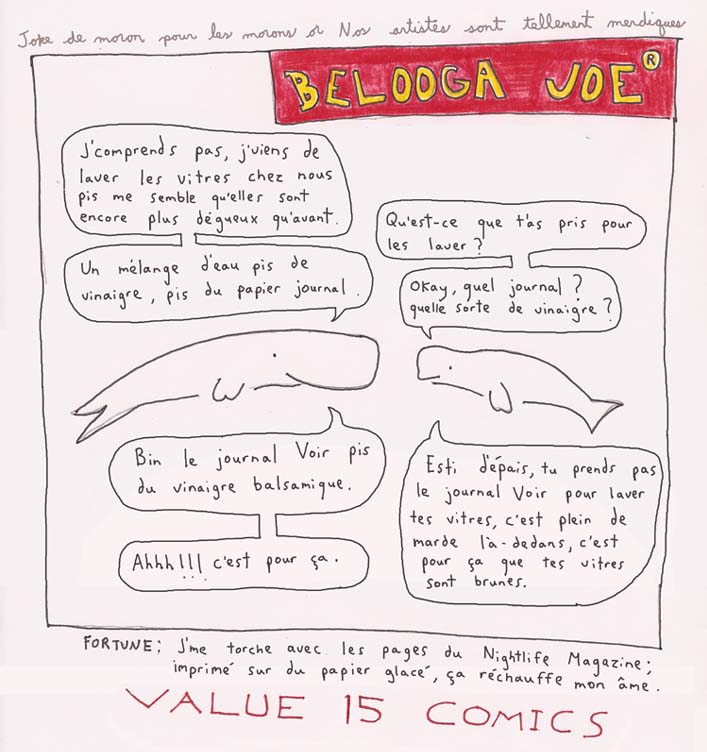 Joke de moron pour les morons or Nos artistes sont tellement merdiques
BELOOGA JOE®
J'comprends pas, j'viens de
laver les vitres chez nous
pis me semble qu'elles sont
encore plus dégueux qu'avant.
Un mélange d'eau pis de
vinaigre, pis du papier journal.
Qu'est-ce que t'as pris pour
les laver?
Okay, quel journal?
quelle sorte de vinaigre?
Bin le journal Voir pis
du vinaigre balsamique.
Ahhh!!! c'est pour ça.
Esti d'épais, tu prends pas
le journal Voir pour laver
tes vitres, c'est plein de
marde là-dedans, c'est
pour ça que tes vitres
sont brunes.
FORTUNE; J'me torche avec les pages du Nightlife Magazine;
imprimé sur du papier glacé, ça réchauffe mon âme.
VALUE 15 COMICS